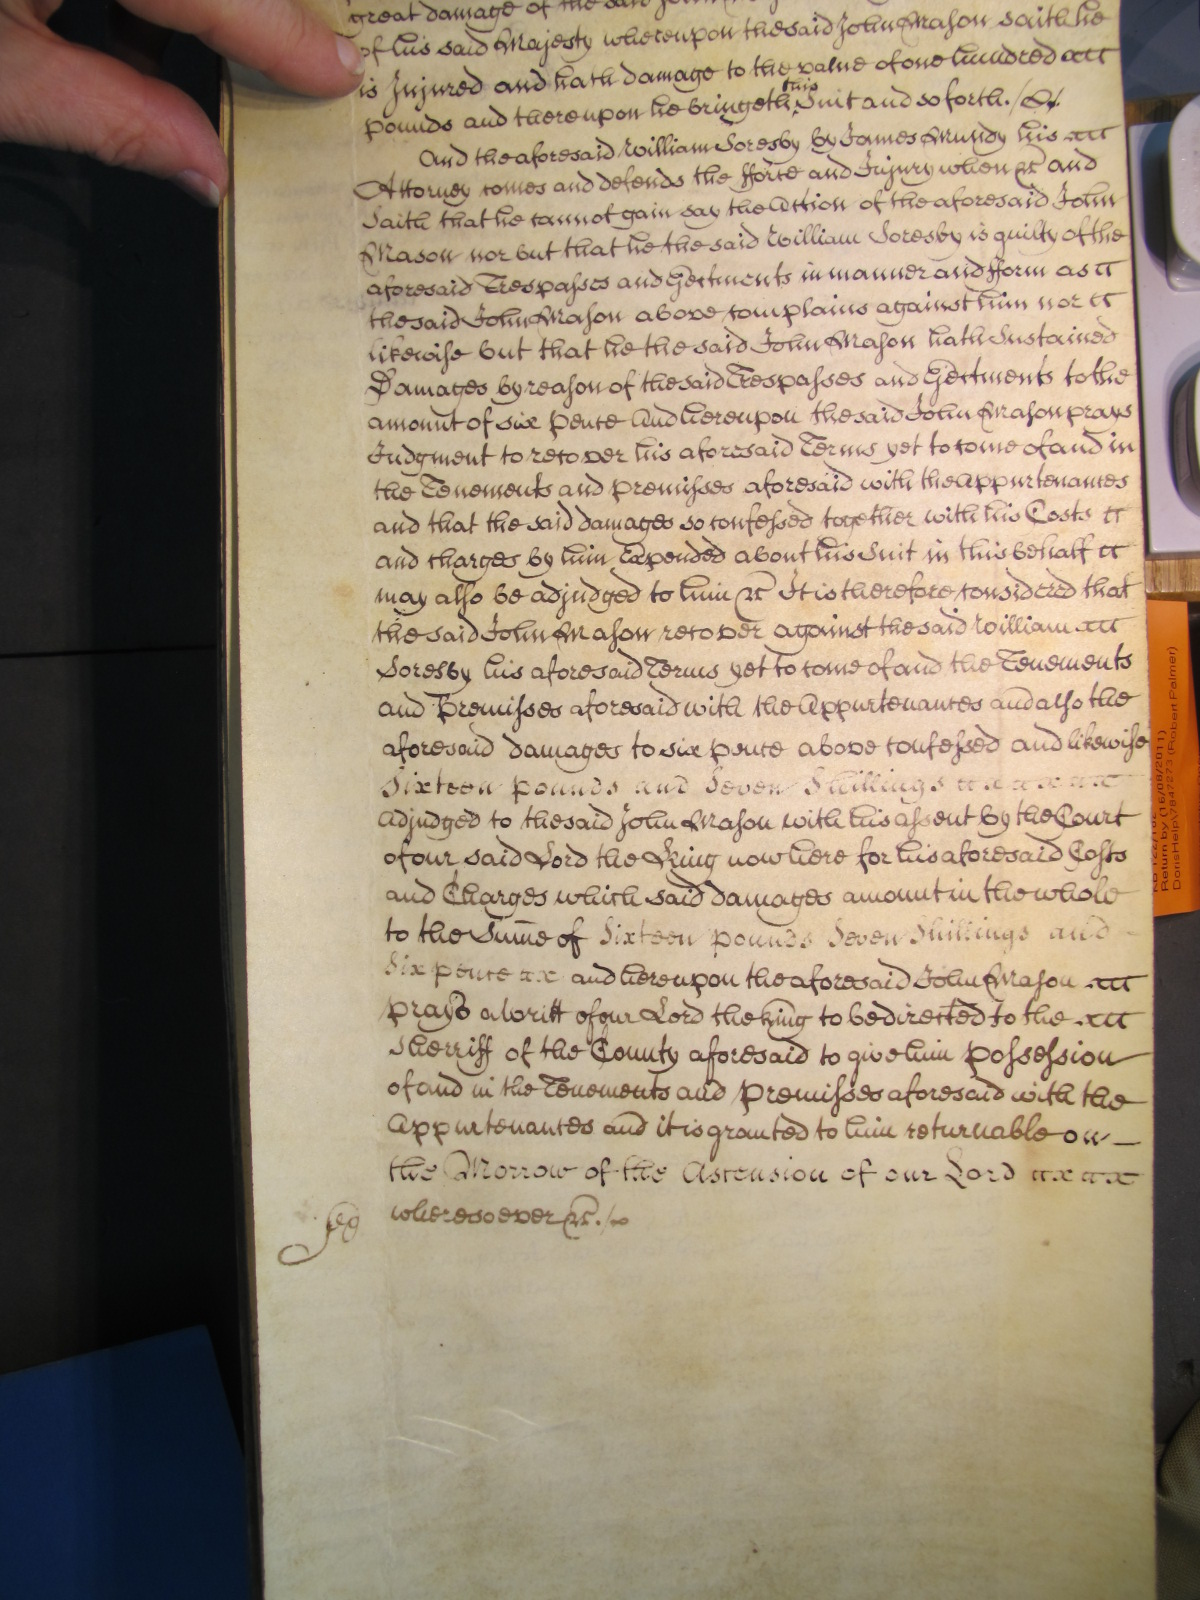 great damage of the said John
of his said Majesty whereupon the said John Mason saith he
is Injured and hath damage to the value of one hundred
pounds and thereupon he bringeth this Suit and so forth./&c.
And the aforesaid William Soresby by James Mundy his
Attorney comes and defends the fforce and Injury when &c and
Saith that he cannot gain say the Action of the aforesaid John
Mason nor but that he the said William Soresby is guilty of the
aforesaid Trespasses and Ejectments in manner and fform as
the said John Mason above complains against him nor
likewise but that he the said John Mason hath Sustained
Damages by reason of the said Trespasses and Ejectments to the
amount of six pence And hereupon the said John Mason prays
Judgment to recover his aforesaid Terms yet to come of and in
the Tenements and premisses aforesaid with the Appurtenances
and that the said damages so confessed together with his Costs
and charges by him Expended about his Suit in this behalf
may also be adjudged to him &c It is therefore considered that
the said John Mason recover against the said William
Soresby his aforesaid Terms yet to come of and the Tenements
and Premisses aforesaid with the Appurtenances and also the
aforesaid damages to six pence above confessed and likewise
Sixteen pounds and Seven Shillings
Adjudged to the said John Mason with his assent by the Court
of our said Lord the King now here for his aforesaid Costs
and Charges which said damages amount in the whole
to the Sume of Sixteen pounds Seven Shillings and
Six pence and hereupon the aforesaid John Mason
prays a writt of our Lord the King to be directed to the
Sherriff of the County aforesaid to give him possession
of and in the Tenements and Premisses aforesaid with the
Appurtenances and it is granted to him returnable on
the Morrow of the Ascension of our Lord
wheresoever &c./
Return by (16/08/2011)
DorisHelpV7847273 (Robert Palmer)